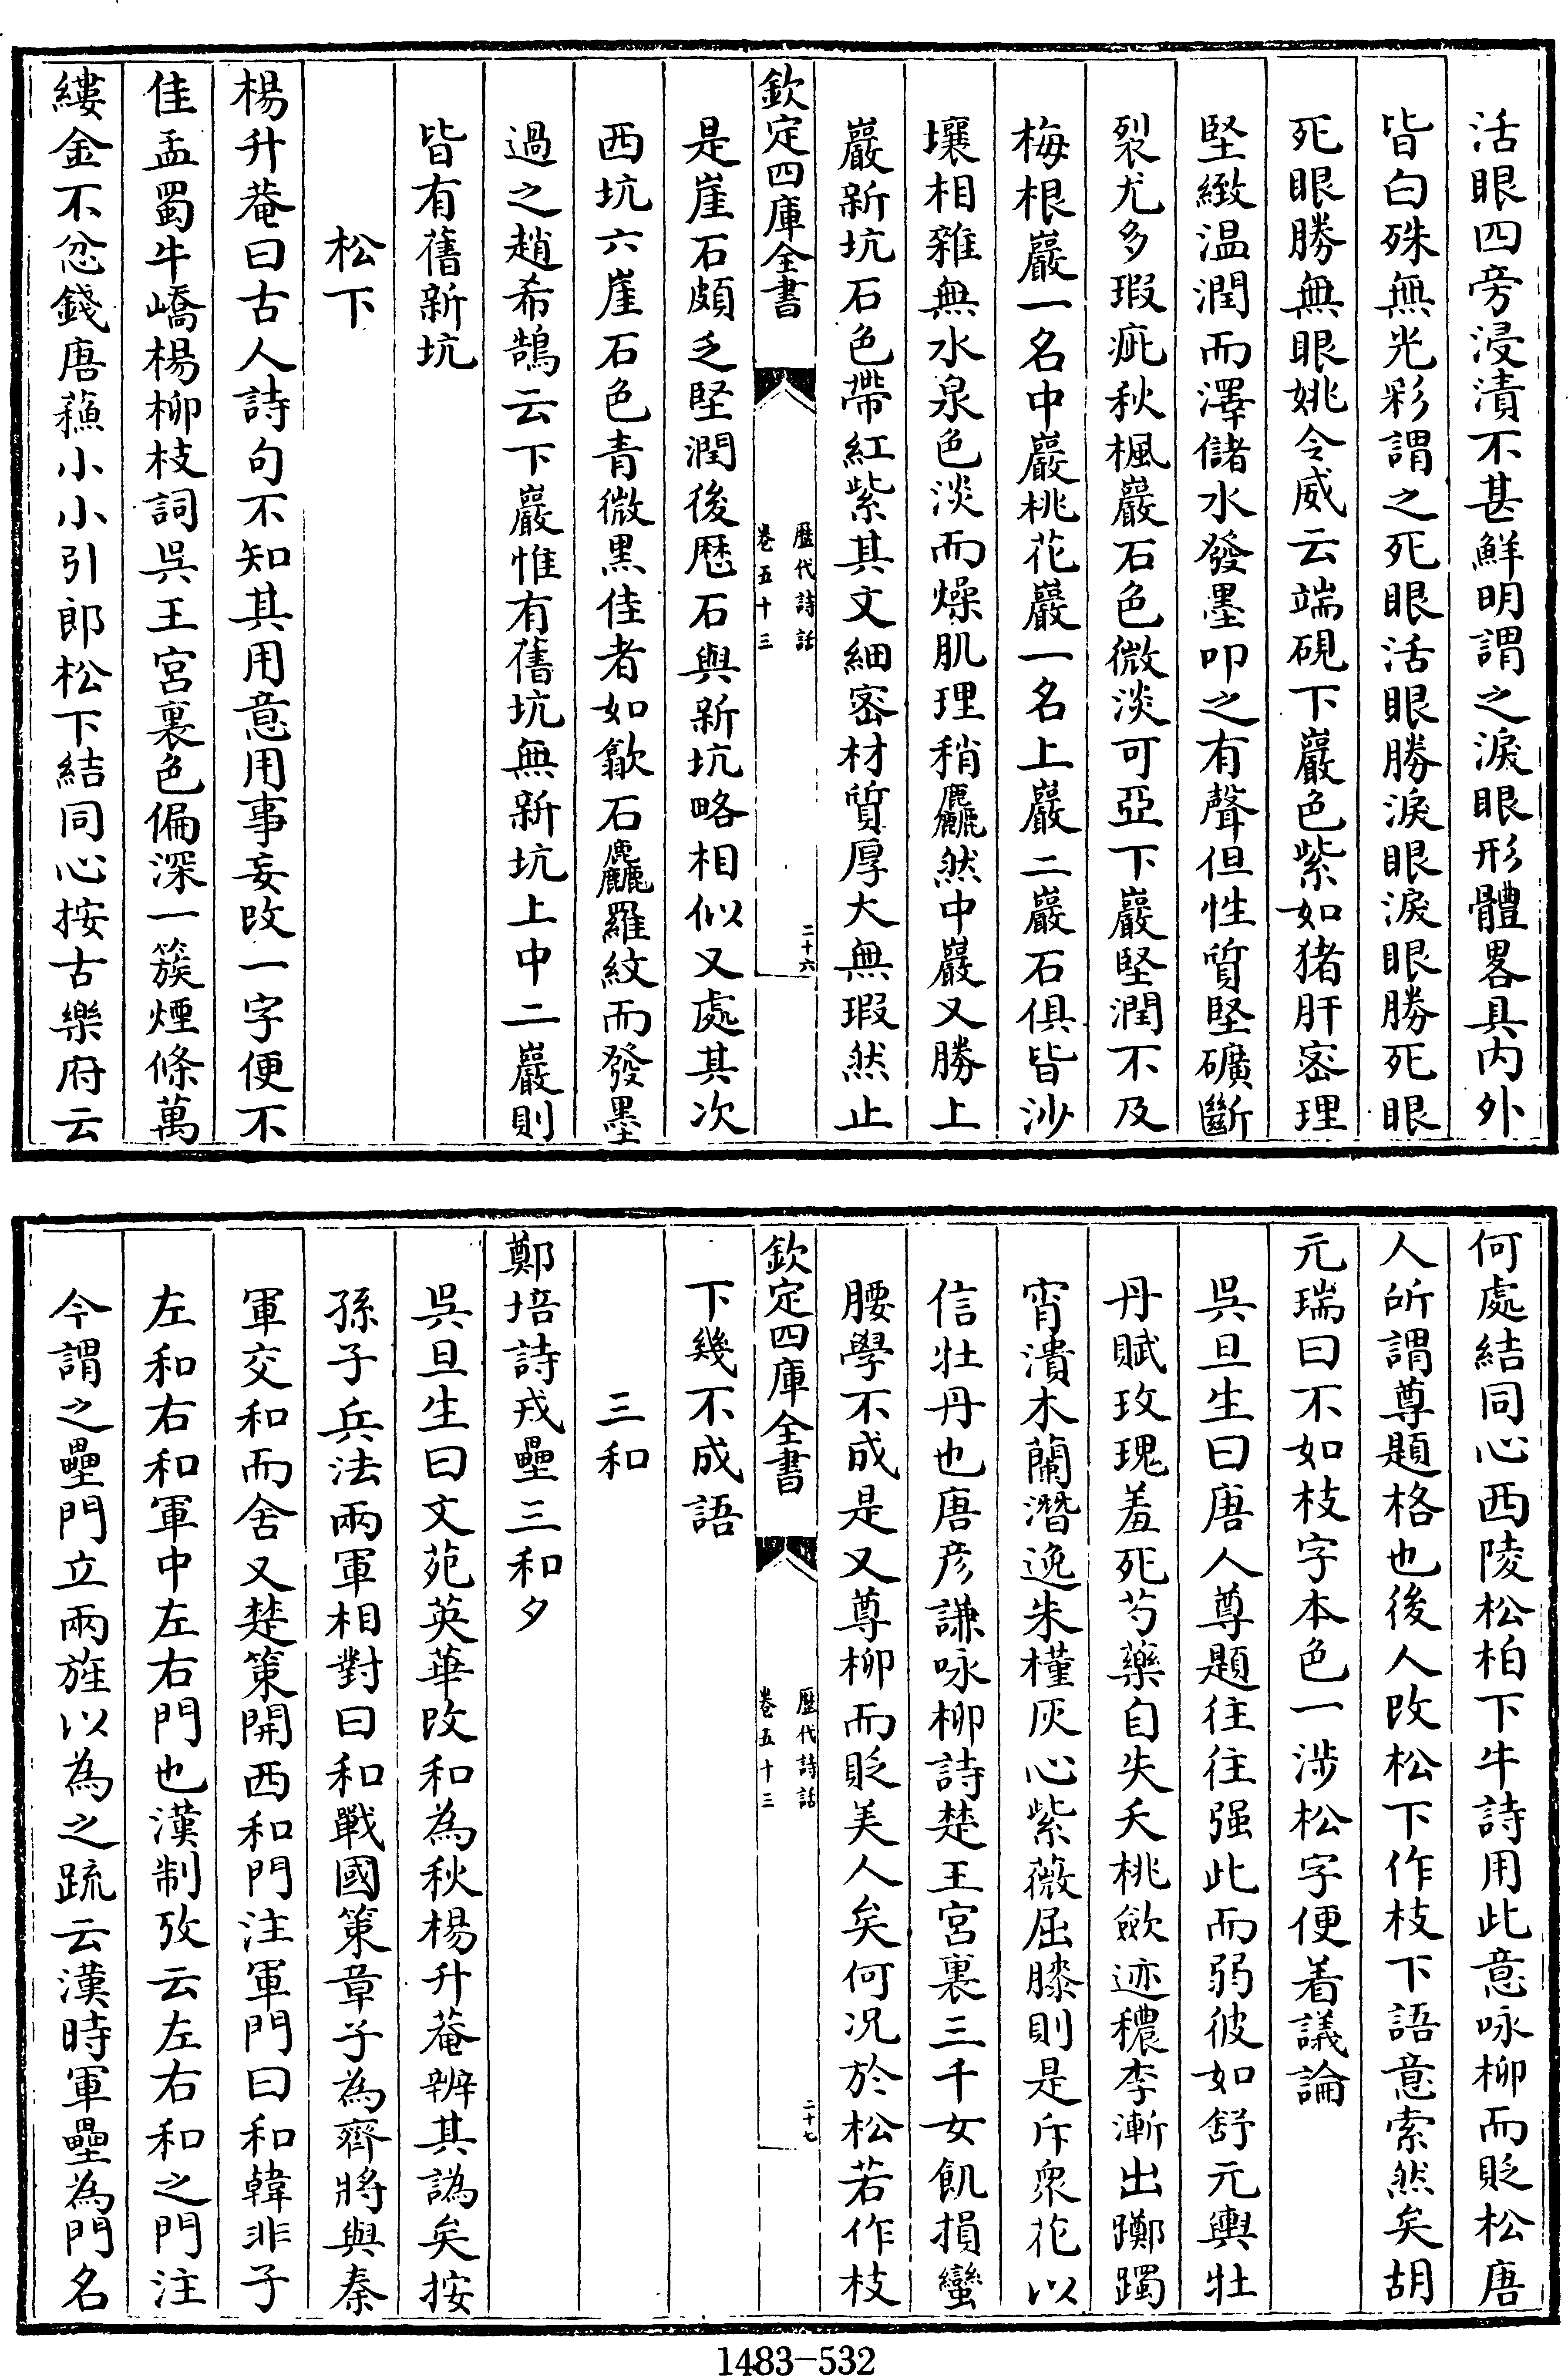 活眼四旁浸漬不甚鮮明謂之淚眼形體畧具内外
皆白殊無光彩謂之死眼活眼勝淚眼淚眼勝死眼
死眼勝無眼姚令威云端硯下巖色紫如猪肝宻理
堅緻温潤而澤儲水發墨叩之有聲但性質堅礦斷
裂尤多瑕疵秋楓巖石色微淡可亞下巖堅潤不及
梅根巖一名中巖桃花巖一名上巖二巖石俱皆沙
壤相雜無水泉色淡而燥肌理稍麤然中巖又勝上
巖新坑石色帶紅紫其文細宻材質厚大無瑕然止
欽定四庫全書
歴代詩話
卷五十三
二十六
是崖石頗乏堅潤後厯石與新坑略相似又處其次
西坑六崖石色青微黒佳者如歙石麤羅紋而發墨
過之趙希鵠云下巖惟有舊坑無新坑上中二巖則
皆有舊新坑
松下
楊升菴曰古人詩句不知其用意用事妄改一字便不
佳孟蜀牛嶠楊柳枝詞吳王宮裏色偏深一簇煙條萬
縷金不忿錢唐蘓小小引郎松下結同心按古樂府云
何處結同心西陵松柏下牛詩用此意咏柳而貶松唐
人所謂尊題格也後人改松下作枝下語意索然矣胡
元瑞曰不如枝字本色一涉松字便着議論
吳旦生曰唐人尊題往往强此而弱彼如舒元輿牡
丹賦玫瑰羞死芍藥自失夭桃斂迹穠李漸出躑躅
宵潰木蘭潛逸朱槿灰心紫薇屈膝則是斥衆花以
信牡丹也唐彦謙咏柳詩楚王宮裏三千女飢損蠻
腰學不成是又尊柳而貶美人矣何况於松若作枝
欽定四庫全書
歴代詩話
卷五十三
二十七
下幾不成語
三和
鄭培詩戎壘三和夕
吳旦生曰文苑英華改和為秋楊升菴辨其譌矣按
孫子兵法兩軍相對曰和戰國策章子為齊將與秦
軍交和而舍又楚策開西和門注軍門曰和韓非子
左和右和軍中左右門也漢制攷云左右和之門注
今謂之壘門立兩旌以為之疏云漢時軍壘為門名
1483-532